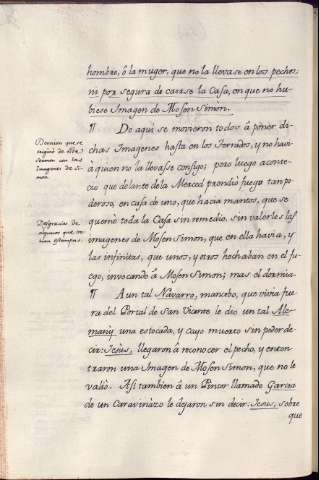 hombre, ô la muger, que no la llevase en los pechos;
ni por segura de carase la Casa, en que no hu-
biese Imagen de Mosen Simon.
¶ De aqui se movieron todos â poner di-
chas Imagenes hasta en los Terrados, y no havia
â quien no la llevasse consigo; pero luego aconte-
cio que delante dela Merced prendió fuego tan po-
deroso, en casa de uno, que hacia mantos, que se
quemò toda la Casa sin remedio, sin valerle las
imagenes de Mosen Simon, que en ella havia, y
las infinitas, que unos, y otros hechaban en el fu-
ego, invocando â Mosen Simon; mas el dormia.
¶ A un tal Navarro, mancebo, que vivia fue-
ra del Portal de San Vicente le dio un tal Ale-
many una estocada, y cayò muerto sin poder de-
cir: Jesus, llegaron â reconocer el pecho, y encon-
traron una Imagen de Mosen Simon, que no le
valiò. Asi tambien â un Pincer llamado Garcia
de un Caravinazo le dejaron sin decir: Jesus, sobre
que
imagenes de Si-
mon.
Desgracias de
algunos que te-
nian estampas.